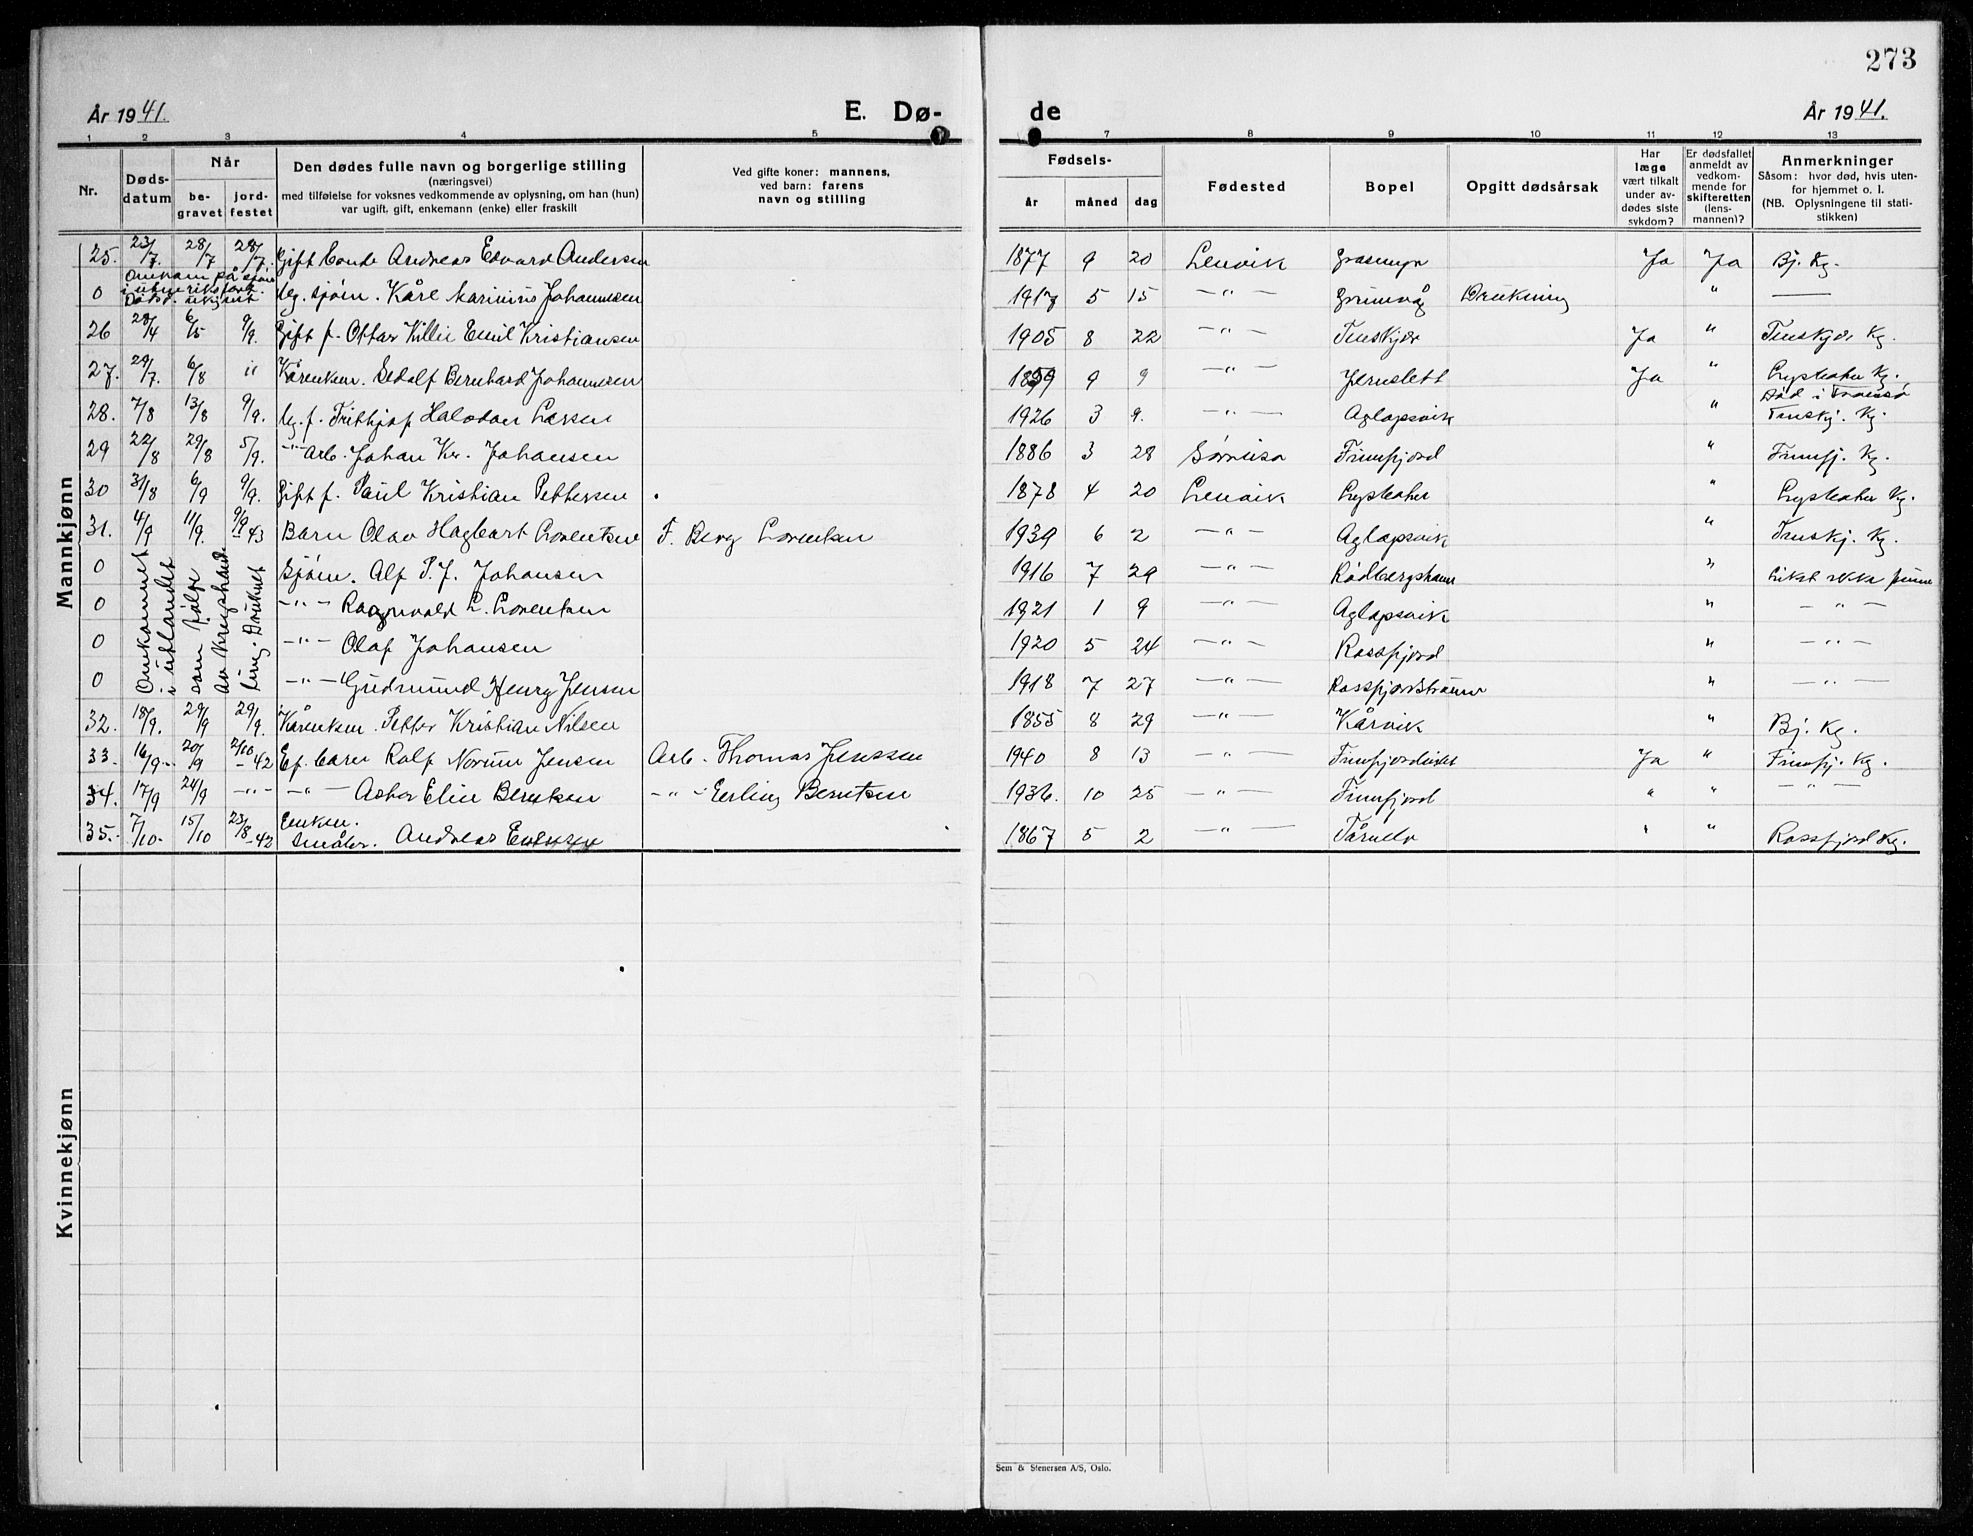 273
År 1941.
E. Dø-
de
År 1941.
1 2 3 4 5 7 8 9 10 11 12 13
Nr.
Døds-
datum
Når
be-
gravet
jord-
festet
Den dødes fulle navn og borgerlige stilling
(næringsvei)
med tilføielse for voksnes vedkommende av oplysning, om han (hun)
var ugift, gift, enkemann (enke) eller fraskilt
Ved gifte koner: mannens,
ved barn: farens
navn og stilling
Fødsels-
år måned dag
Fødested
Bopel
Opgitt dødsårsak
Har
læge
vært tilkalt
under av-
dødes siste
sykdom?
Er dødsfallet
anmeldt av
vedkom-
mende for
skifteretten
(lens-
mannen)?
Anmerkninger
Såsom: hvor død, hvis uten-
for hjemmet o. l.
(NB. Oplysningene til stati-
stikken)
Mannkjønn
25. 23/7. 28/7 28/7. Gift bonde Andreas Edvard Andersen 1877 9 20 Lenvik Grasmyr Ja Ja Bj. Kg.
Omkom på sjøen
i utenriksfart.
Dødsd. ukjent
0 Ug. sjøm. Kåre Marinius Johannesen 1917 5 15 -"- Grunvåg Drukning " —
26 28/4 6/5 9/9. Gift f. Ottar Villi Emil Kristiansen 1905 8 22 -"- Finskjær Ja " Finskjær Kg.
27. 29/7. 6/8 " Kårenkem. Sedolf Bernhard Johannesen 1859 9 9 -"- Jernslett Ja " Lysbotn Kg.
28. 7/8 13/8 9/9. Ug. f. Frithjof Halvdan Larsen 1926 3 9. -"- Aglapsvik " Død i Tromsø
Finskj. Kg.
29 22/8 29/8 5/9. -"- Arb. Johan Kr. Johansen 1886 3 28 Sørreisa Finnfjord " Finnfj. Kg.
30 31/8 6/9 9/9. Gift f. Paul Kristian Pettersen 1878 4 20 Lenvik Lysbotn " Lysbotn Kg.
31. 4/9 11/9. 9/9 43 Barn Olav Hagbart Lorentsen F. Berg Lorentsen 1939 6 2 -"- Aglapsvik " Finskj. Kg.
Omkommet
i utlandet
som følge
av krigshand-
ling. Druknet
0 Sjøm. Alf P. J. Johansen 1916 7 29 -"- Rødbergshamn " Liket ikke funne
0 -"- Ragnvald L. Lorentsen 1921 1 9 -"- Aglapsvik " -"-
0 -"- Olaf Johansen 1920 5 24 -"- Rossfjord " -"-
0 -"- Gudmund Henry Jensen 1918 7 27 -"- Rossfjordstraumen " -"-
32. 18/9. 29/9 29/9. Kårenkem. Petter Kristian Nilsen 1855 8 29 -"- Kårvik " Bj. Kg.
33. 16/9- 20/9 2/10 -42 Ef. barn Rolf Norum Jensen Arb. Thomas Jenssen 1940 8 13 -"- Finnfjordeidet Ja " Finnfj. Kg.
34. 17/9 24/9 -"- -"- Asbor Elin Berntsen -"- Erling Berntsen 1936. 10 25 -"- Finnfjord " " -"-
35. 7/10- 15/10 23/8-42 Enkem.
Småbr. Andreas 1867 5 2 -"- Tårnelv " " Rossfjord Kg.
Kvinnekjønn
Sem & Stenersen A/S, Oslo.